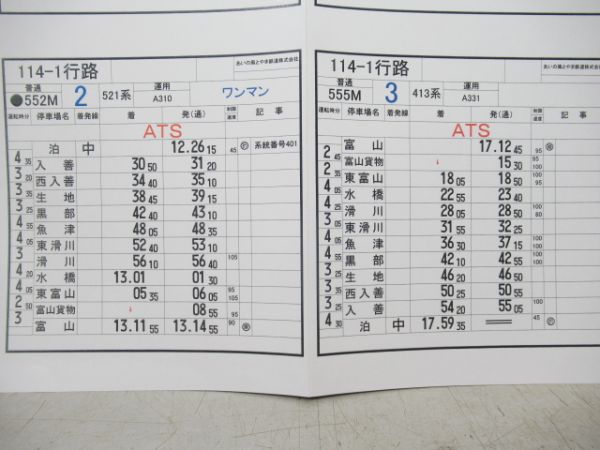 114-1行路
あいの風とやま鉄道株式会社
普通
●552M 2 521系 運用 A310 ワンマン
運転時分 停車場名 着発線 着 発(通) 制限速度 記事
ATS
泊 中 12.26 15 45 系統番号401
4 35 入善 30 50 31 20
3 20 西入善 34 40 35 10
3 35 生地 38 45 39 15
3 25 黒部 42 40 43 10
4 55 魚津 48 05 48 35
4 05 東滑川 52 40 53 10
3 滑川 56 10 56 40 105
4 20 水橋 13.01 01 30
4 05 東富山 05 35 06 05 95
2 50 富山貨物 ↓ 08 55 105 95
3 富山 13.11 55 13.14 55 90
114-1行路
あいの風とやま鉄道株式会社
普通
555M 3 413系 運用 A331
運転時分 停車場名 着発線 着 発(通) 制限速度 記事
ATS
富山 17.12 45 95
2 45 富山貨物 ↓ 15 30 100 95
2 35 東富山 18 05 18 50 100 95
4 05 水橋 22 55 23 40
4 25 滑川 28 05 28 50 100 80
3 05 東滑川 31 55 32 25
4 05 魚津 36 30 37 15 100
4 55 黒部 42 10 42 55 100 100
3 25 生地 46 20 46 50
3 35 西入善 50 25 50 55
3 25 入善 54 20 55 05 100
4 30 泊 中 17.59 35 45